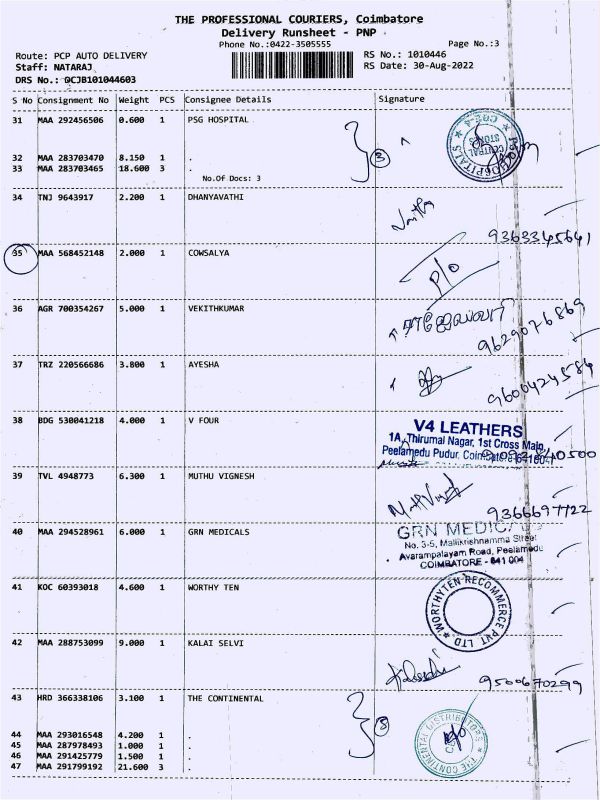 THE PROFESSIONAL COURIERS, Coimbatore
Delivery Runsheet - PNP
Phone No.:0422-3505555
Page No.:3
Route: PCP AUTO DELIVERY
Staff: NATARAJ
DRS No.: QCJB101044603
RS No.: 1010446
RS Date: 30-Aug-2022
S No Consignment No Weight PCS Consignee Details Signature
31 MAA 292456506 0.600 1 PSG HOSPITAL
32 MAA 283703470 8.150 1 .
33 MAA 283703465 18.600 3 .
No.Of Docs: 3
3
34 TNJ 9643917 2.200 1 DHANYAVATHI
9363345641
35 MAA 568452148 2.000 1 COWSALYA
P/O
36 AGR 700354267 5.000 1 VEKITHKUMAR
9629076869
37 TRZ 220566686 3.800 1 AYESHA
9600424584
38 BDG 530041218 4.000 1 V FOUR
V4 LEATHERS
1A, Thirumal Nagar, 1st Cross Main,
Peelamedu Pudur, Coimbatore
39 TVL 4948773 6.300 1 MUTHU VIGNESH
9366697722
40 MAA 294528961 6.000 1 GRN MEDICALS
GRN MEDICALS
No. 3-5, Mallikrishnamma Street
Avarampalayam Road, Peelamedu
COIMBATORE - 641 004
41 KOC 60393018 4.600 1 WORTHY TEN
WORTHYTEN RECOMMERCE PVT LTD
42 MAA 288753099 9.000 1 KALAI SELVI
9500670299
43 HRD 366338106 3.100 1 THE CONTINENTAL
44 MAA 293016548 4.200 1 .
45 MAA 287978493 1.000 1 .
46 MAA 291425779 1.500 1 .
47 MAA 291799192 21.600 3 .
THE CONTINENTAL DISTRIBUTORS